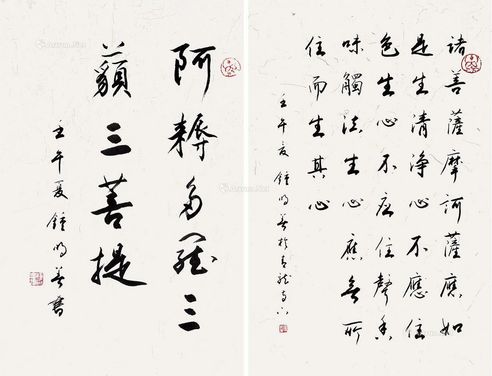 阿耨多羅三
藐三菩提
壬午夏鐘明善書
諸菩薩摩訶薩應如
是生清淨心不應住
色生心不应住聲香
味觸法生心應無所
住而生其心
壬午夏鐘明善於青龍寺下